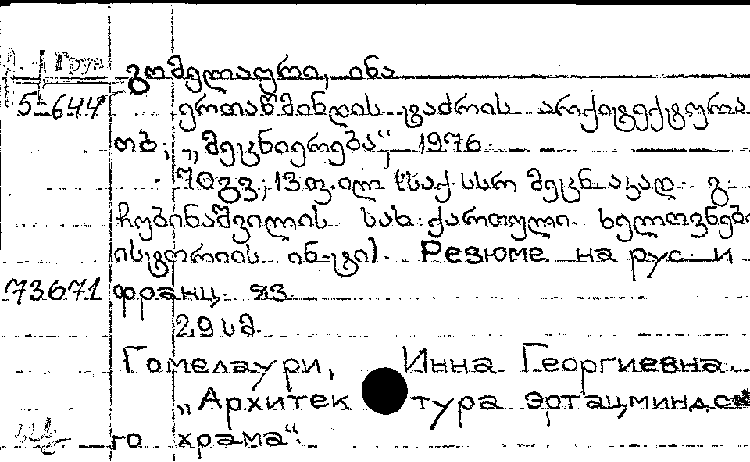 Груз
გომელაური, ინა
5-644 ერთაწმინდის ტაძრის არქიტექტურა
თბ., „მეცნიერება“, 1976.
70გვ.; 13 ფ. ილ. (საქ. სსრ მეცნ. აკად. გ.
ჩუბინაშვილის სახ. ქართული ხელოვნებ
ისტორიის ინ-ტი). Резюме на рус. и
73671 франц. яз.
29 სმ.
Гомелаури, Инна Георгиевна.
„Архитектура эртацминдско
го храма“.